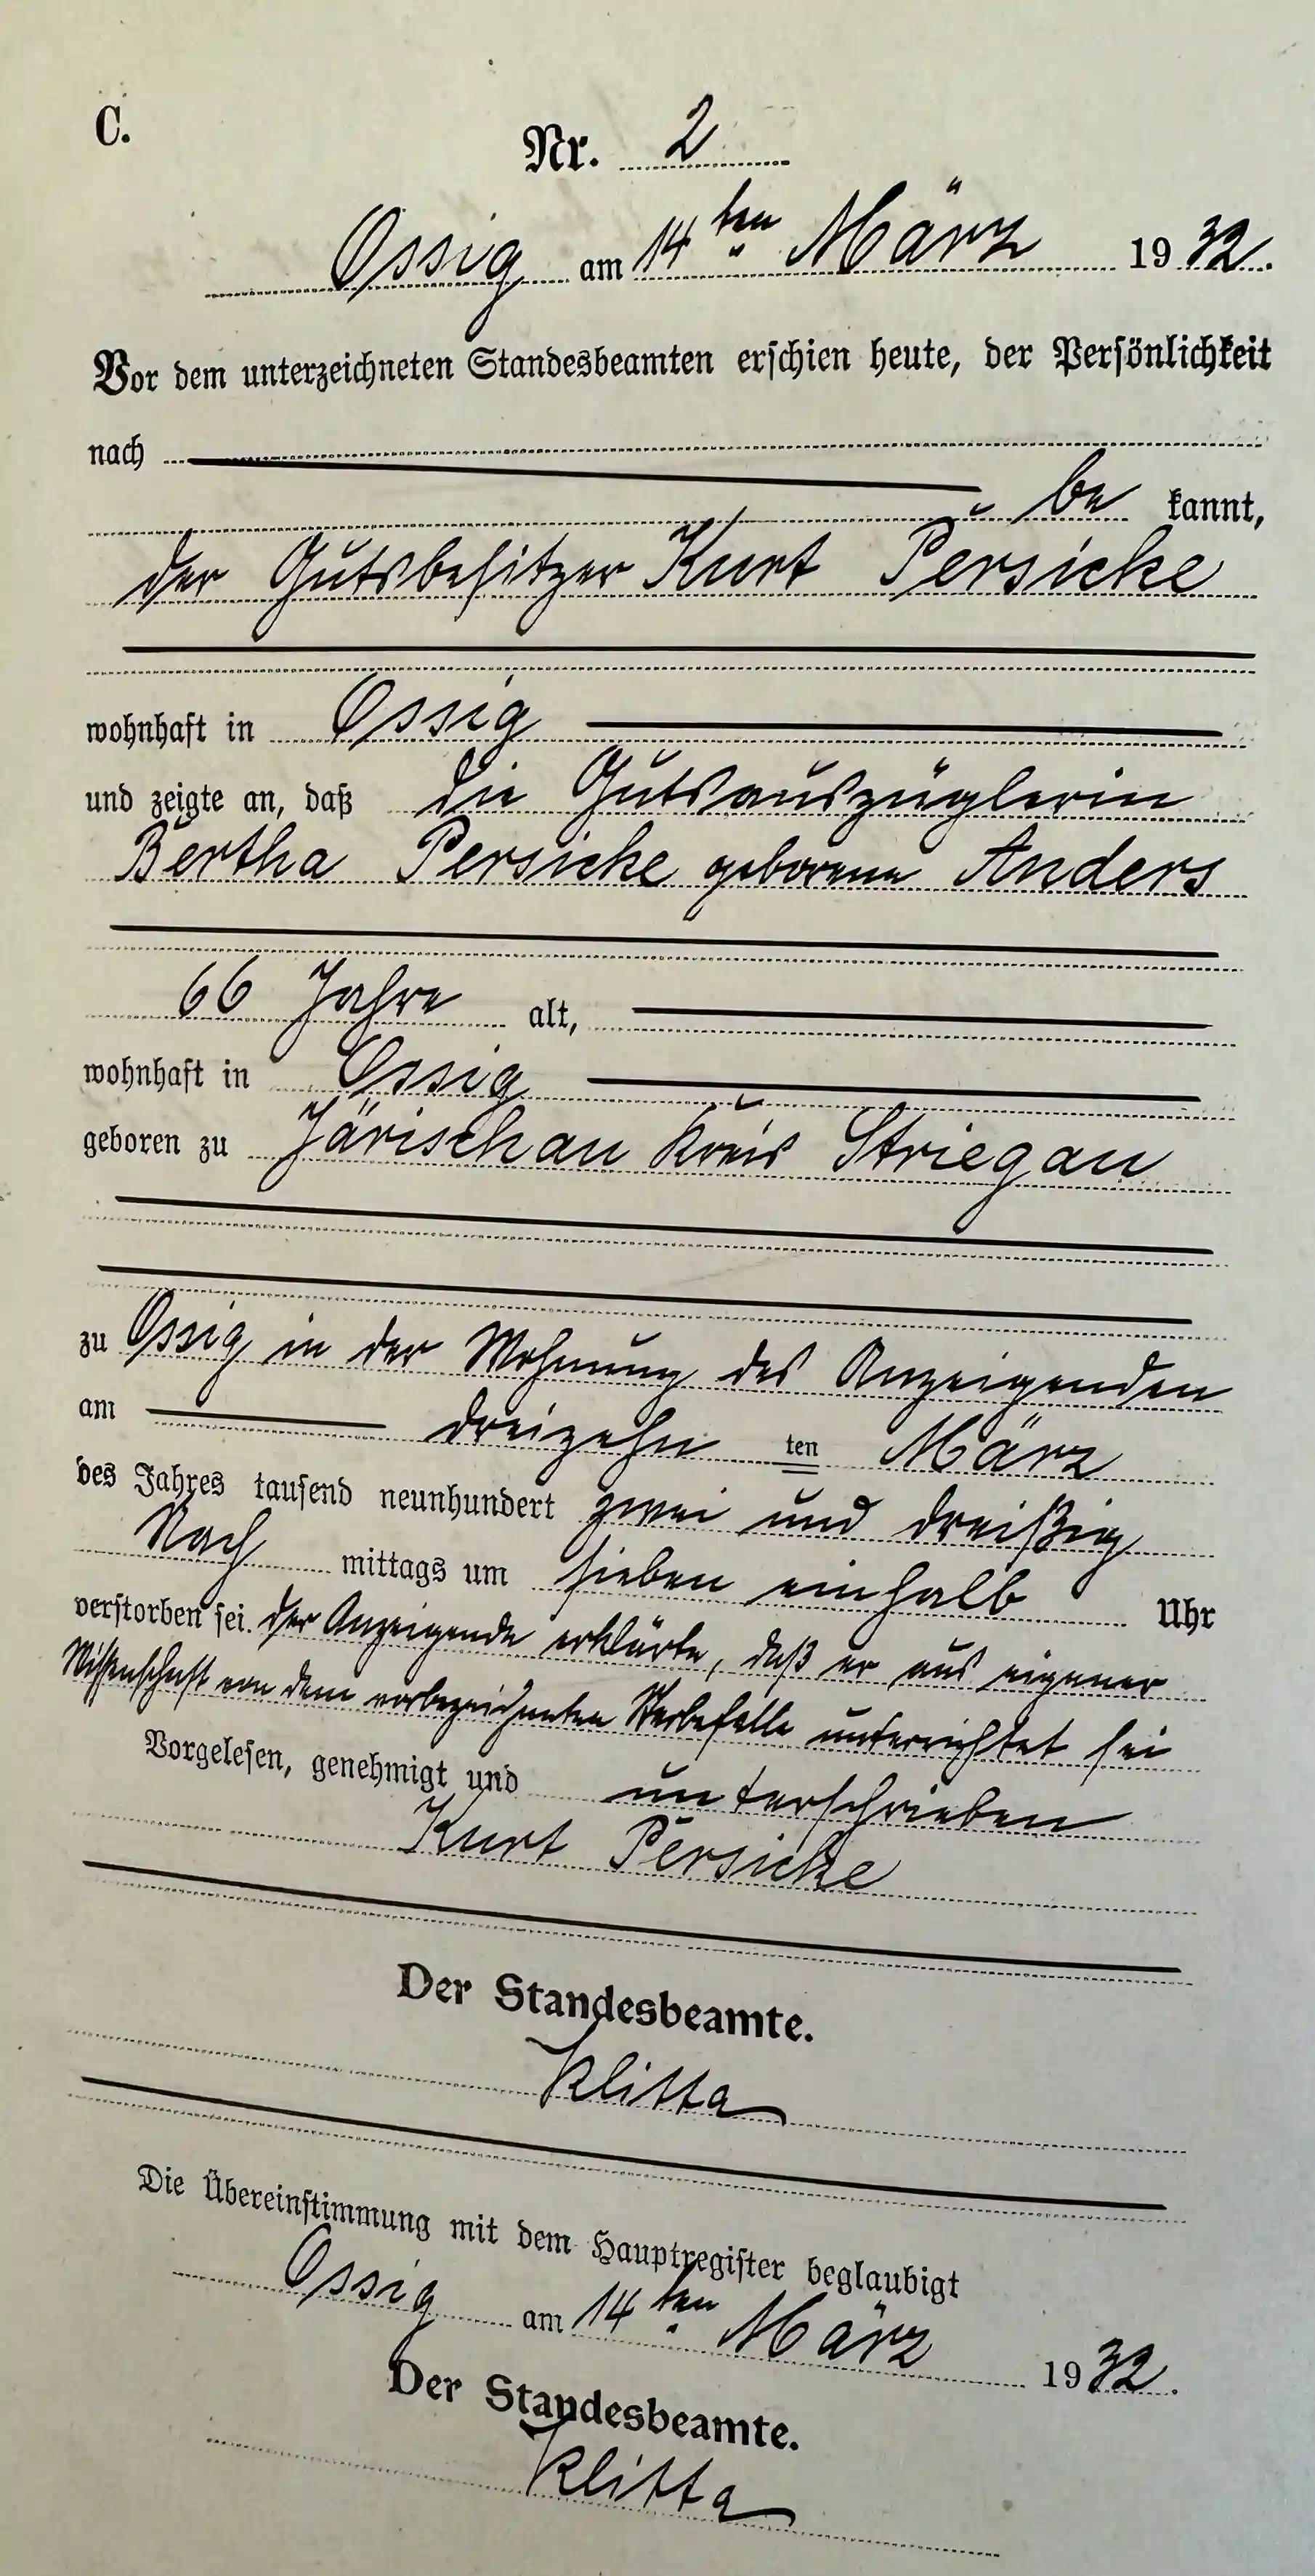 C.
Nr. 2
Ossig am 14ten März 1932.
Vor dem unterzeichneten Standesbeamten erschien heute, der Persönlichkeit
nach
be kannt,
der Gutsbesitzer Kurt Persicke
wohnhaft in Ossig
und zeigte an, daß die Gutsauszüglerin
Bertha Persicke geborene Anders
66 Jahre alt,
wohnhaft in Ossig
geboren zu Järischau Kreis Striegau
zu Ossig in der Wohnung des Anzeigenden
am dreizehn ten März
des Jahres tausend neunhundert zwei und dreißig
Nach mittags um sieben einhalb Uhr
verstorben sei. Der Anzeigende erklärte, daß er aus eigener
Wissenschaft von dem vorbezeichneten Sterbefalle unterrichtet sei
Vorgelesen, genehmigt und unterschrieben
Kurt Persicke
Der Standesbeamte.
Klitta
Die Übereinstimmung mit dem Hauptregister beglaubigt
Ossig am 14ten März 1932.
Der Standesbeamte.
Klitta